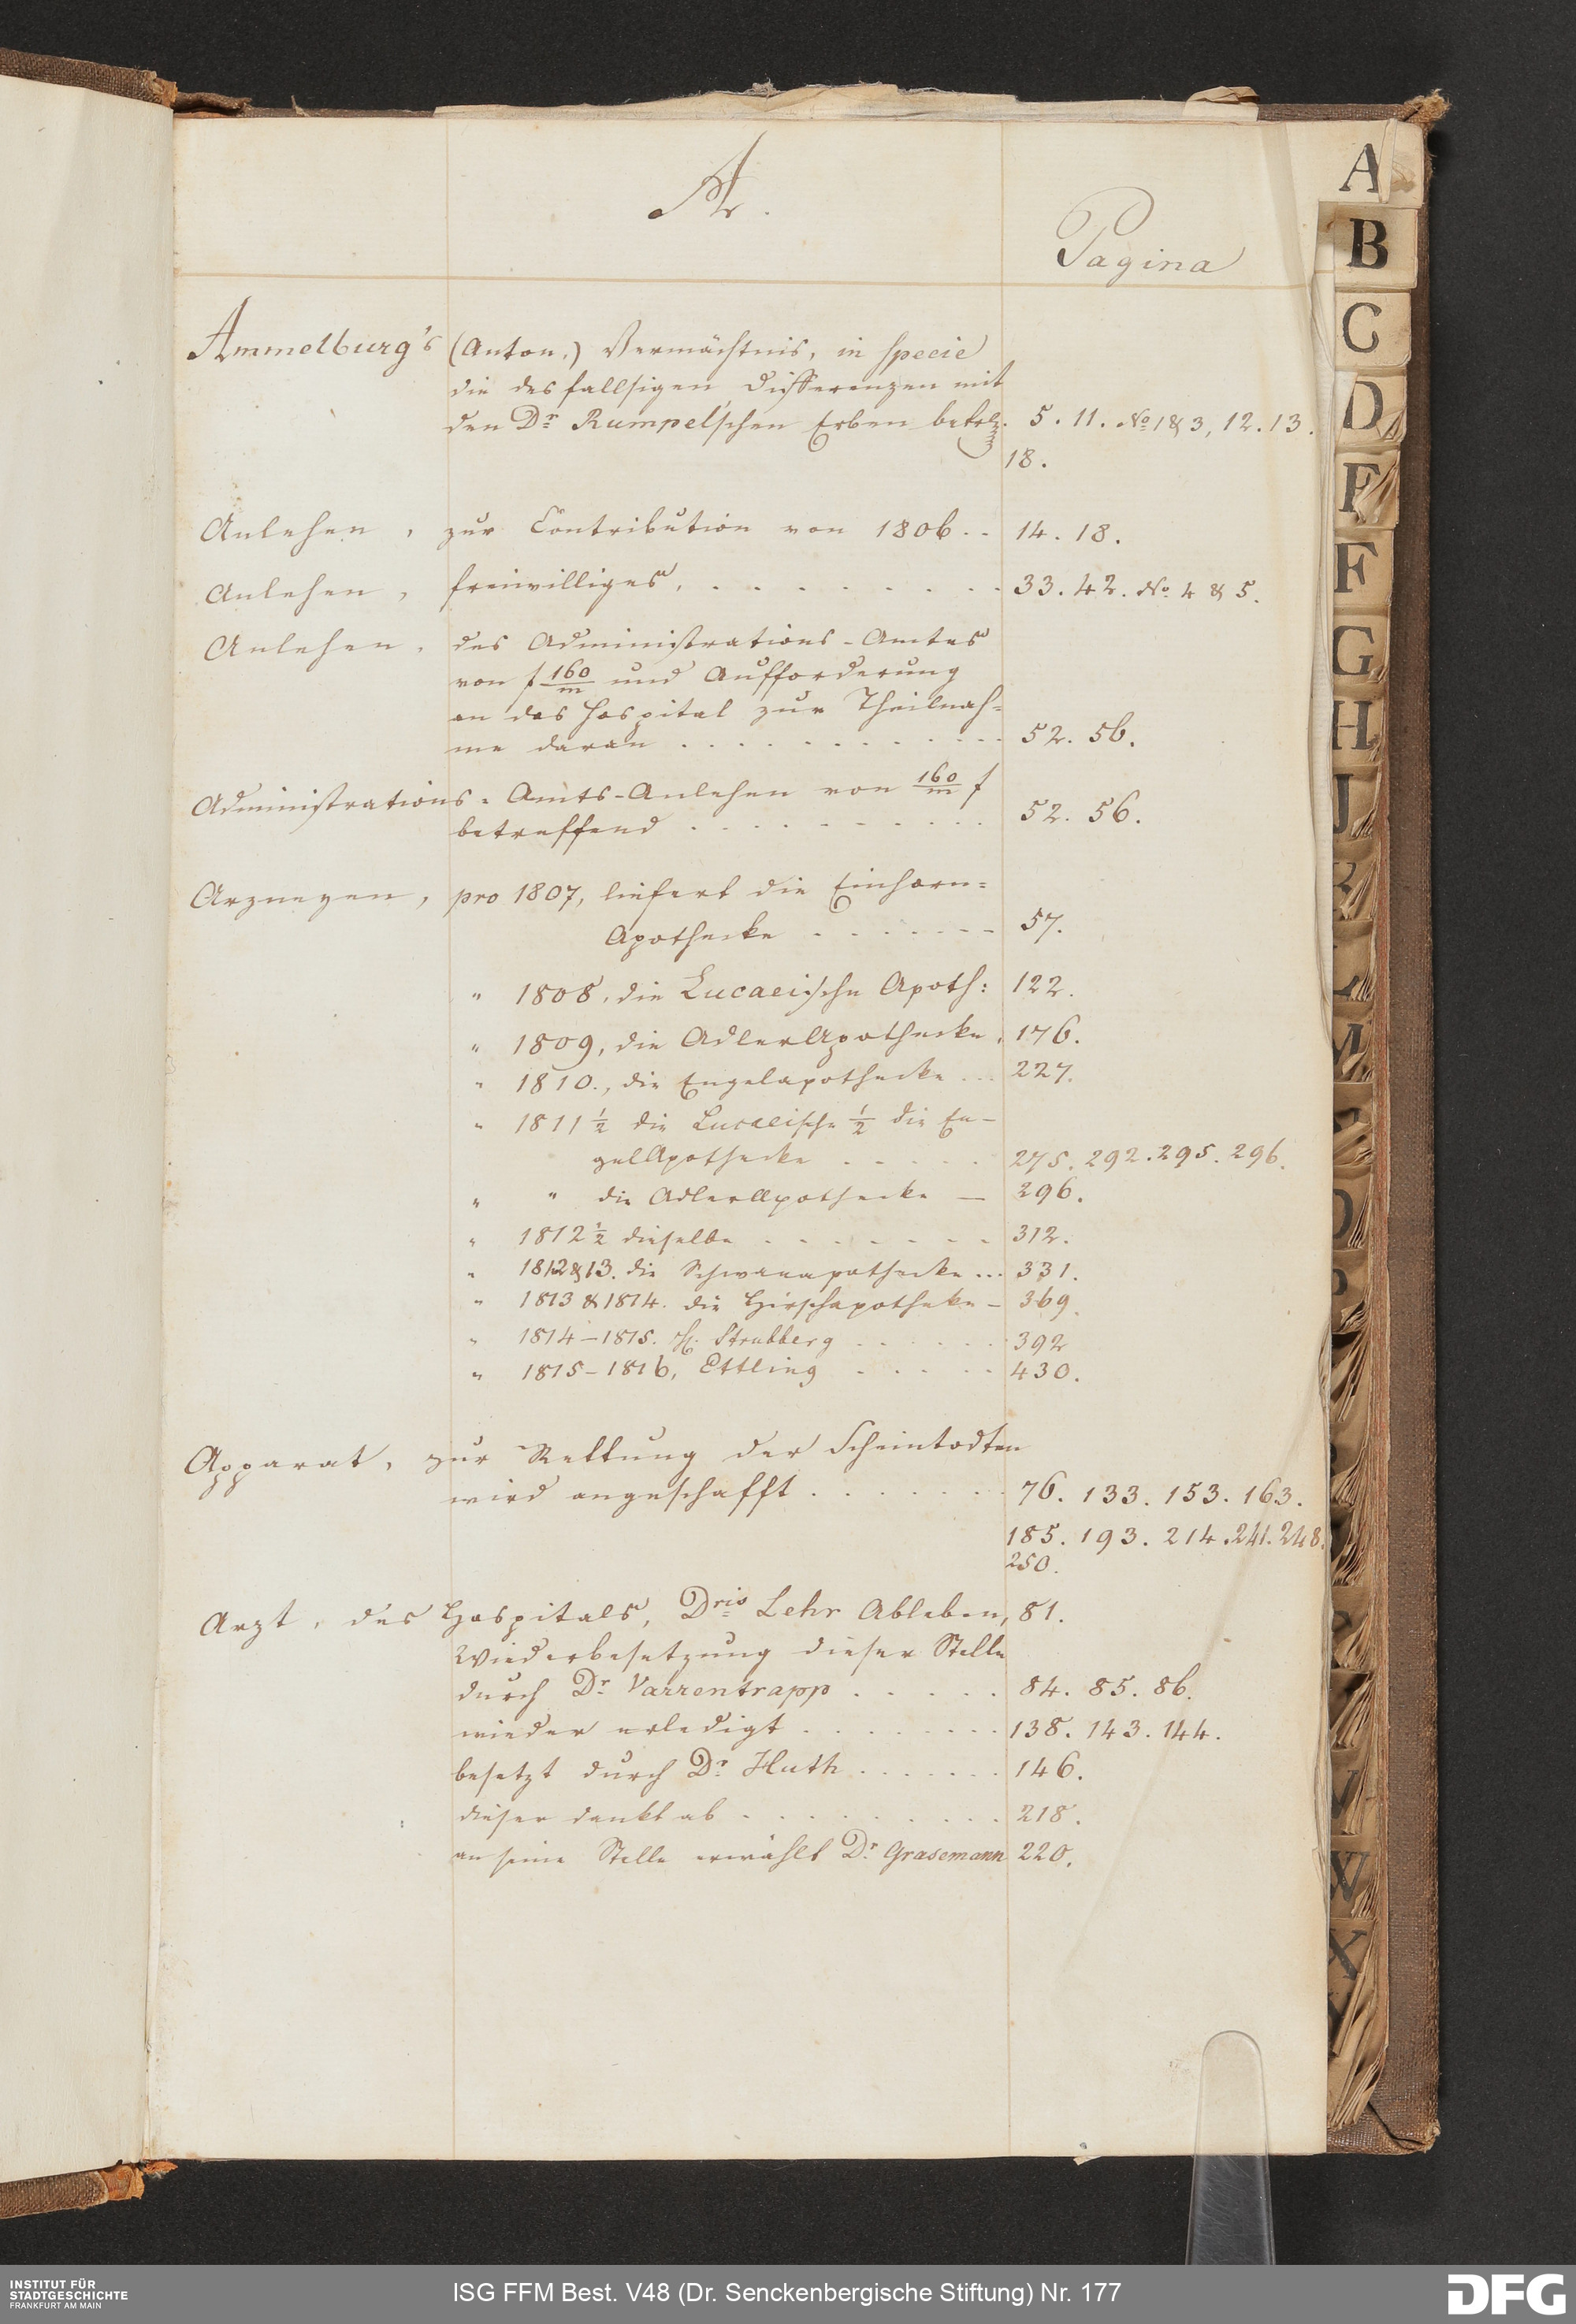 A.
Pagina
Ammelburg's (Anton,) Vermächtnis, in specie
die desfallsigen Differenzen mit
den Dr. Rumpel'schen Erben betr. 5. 11. No 1 & 3, 12. 13.
18.
Anlehen, zur Contribution von 1806 .. 14. 18.
Anlehen, freiwilliges, . . . . . . . . . 33. 42. No. 4 & 5.
Anlehen, des Administrations-Amtes
von f 160/m und Aufforderung
an das Hospital zur Theilnah=
me daran . . . . . . . . . . . 52. 56.
Administrations-Amts-Anlehen von 160/m f
betreffend . . . . . . . . . . 52. 56.
Arzneyen, pro 1807, liefert die Einhorn=
Apothecke . . . . . . . 57.
" 1808, die Lucaeische Apoth: 122.
" 1809, die AdlerApothecke, 176.
" 1810., die Engelapothecke ... 227.
" 1811 ½ die Lucaeische ½ die En-
gelApothecke . . . . . 275. 292. 295. 296.
" " die AdlerApothecke — 296.
" 1812 ½ dieselbe . . . . . . . . 312.
" 1812&13. die Schwanapothecke ... 331.
" 1813 & 1814. die Hirschapotheke — 369.
" 1814—1815. H. Strubberg . . . . . . 392
" 1815—1816, Ettling . . . . . 430.
Apparat, zur Rettung der Scheintodten
wird angeschafft . . . . . . . 76. 133. 153. 163.
185. 193. 214. 241. 248.
250.
Arzt, des Hospitals, Dris Lehr Ableben, 81.
Wiederbesetzung dieser Stelle
durch Dr. Varrentrapp . . . . . 84. 85. 86.
wieder erledigt . . . . . . . . 138. 143. 144.
besetzt durch Dr. Huth . . . . . . . 146.
dieser dankt ab . . . . . . . . . 218.
an seine Stelle erwählt Dr. Grasemann 220.
A
B
C
D
E
F
G
H
J
L
M
O
P
V
W
X
Y
INSTITUT FÜR
STADTGESCHICHTE
FRANKFURT AM MAIN
ISG FFM Best. V48 (Dr. Senckenbergische Stiftung) Nr. 177
DFG